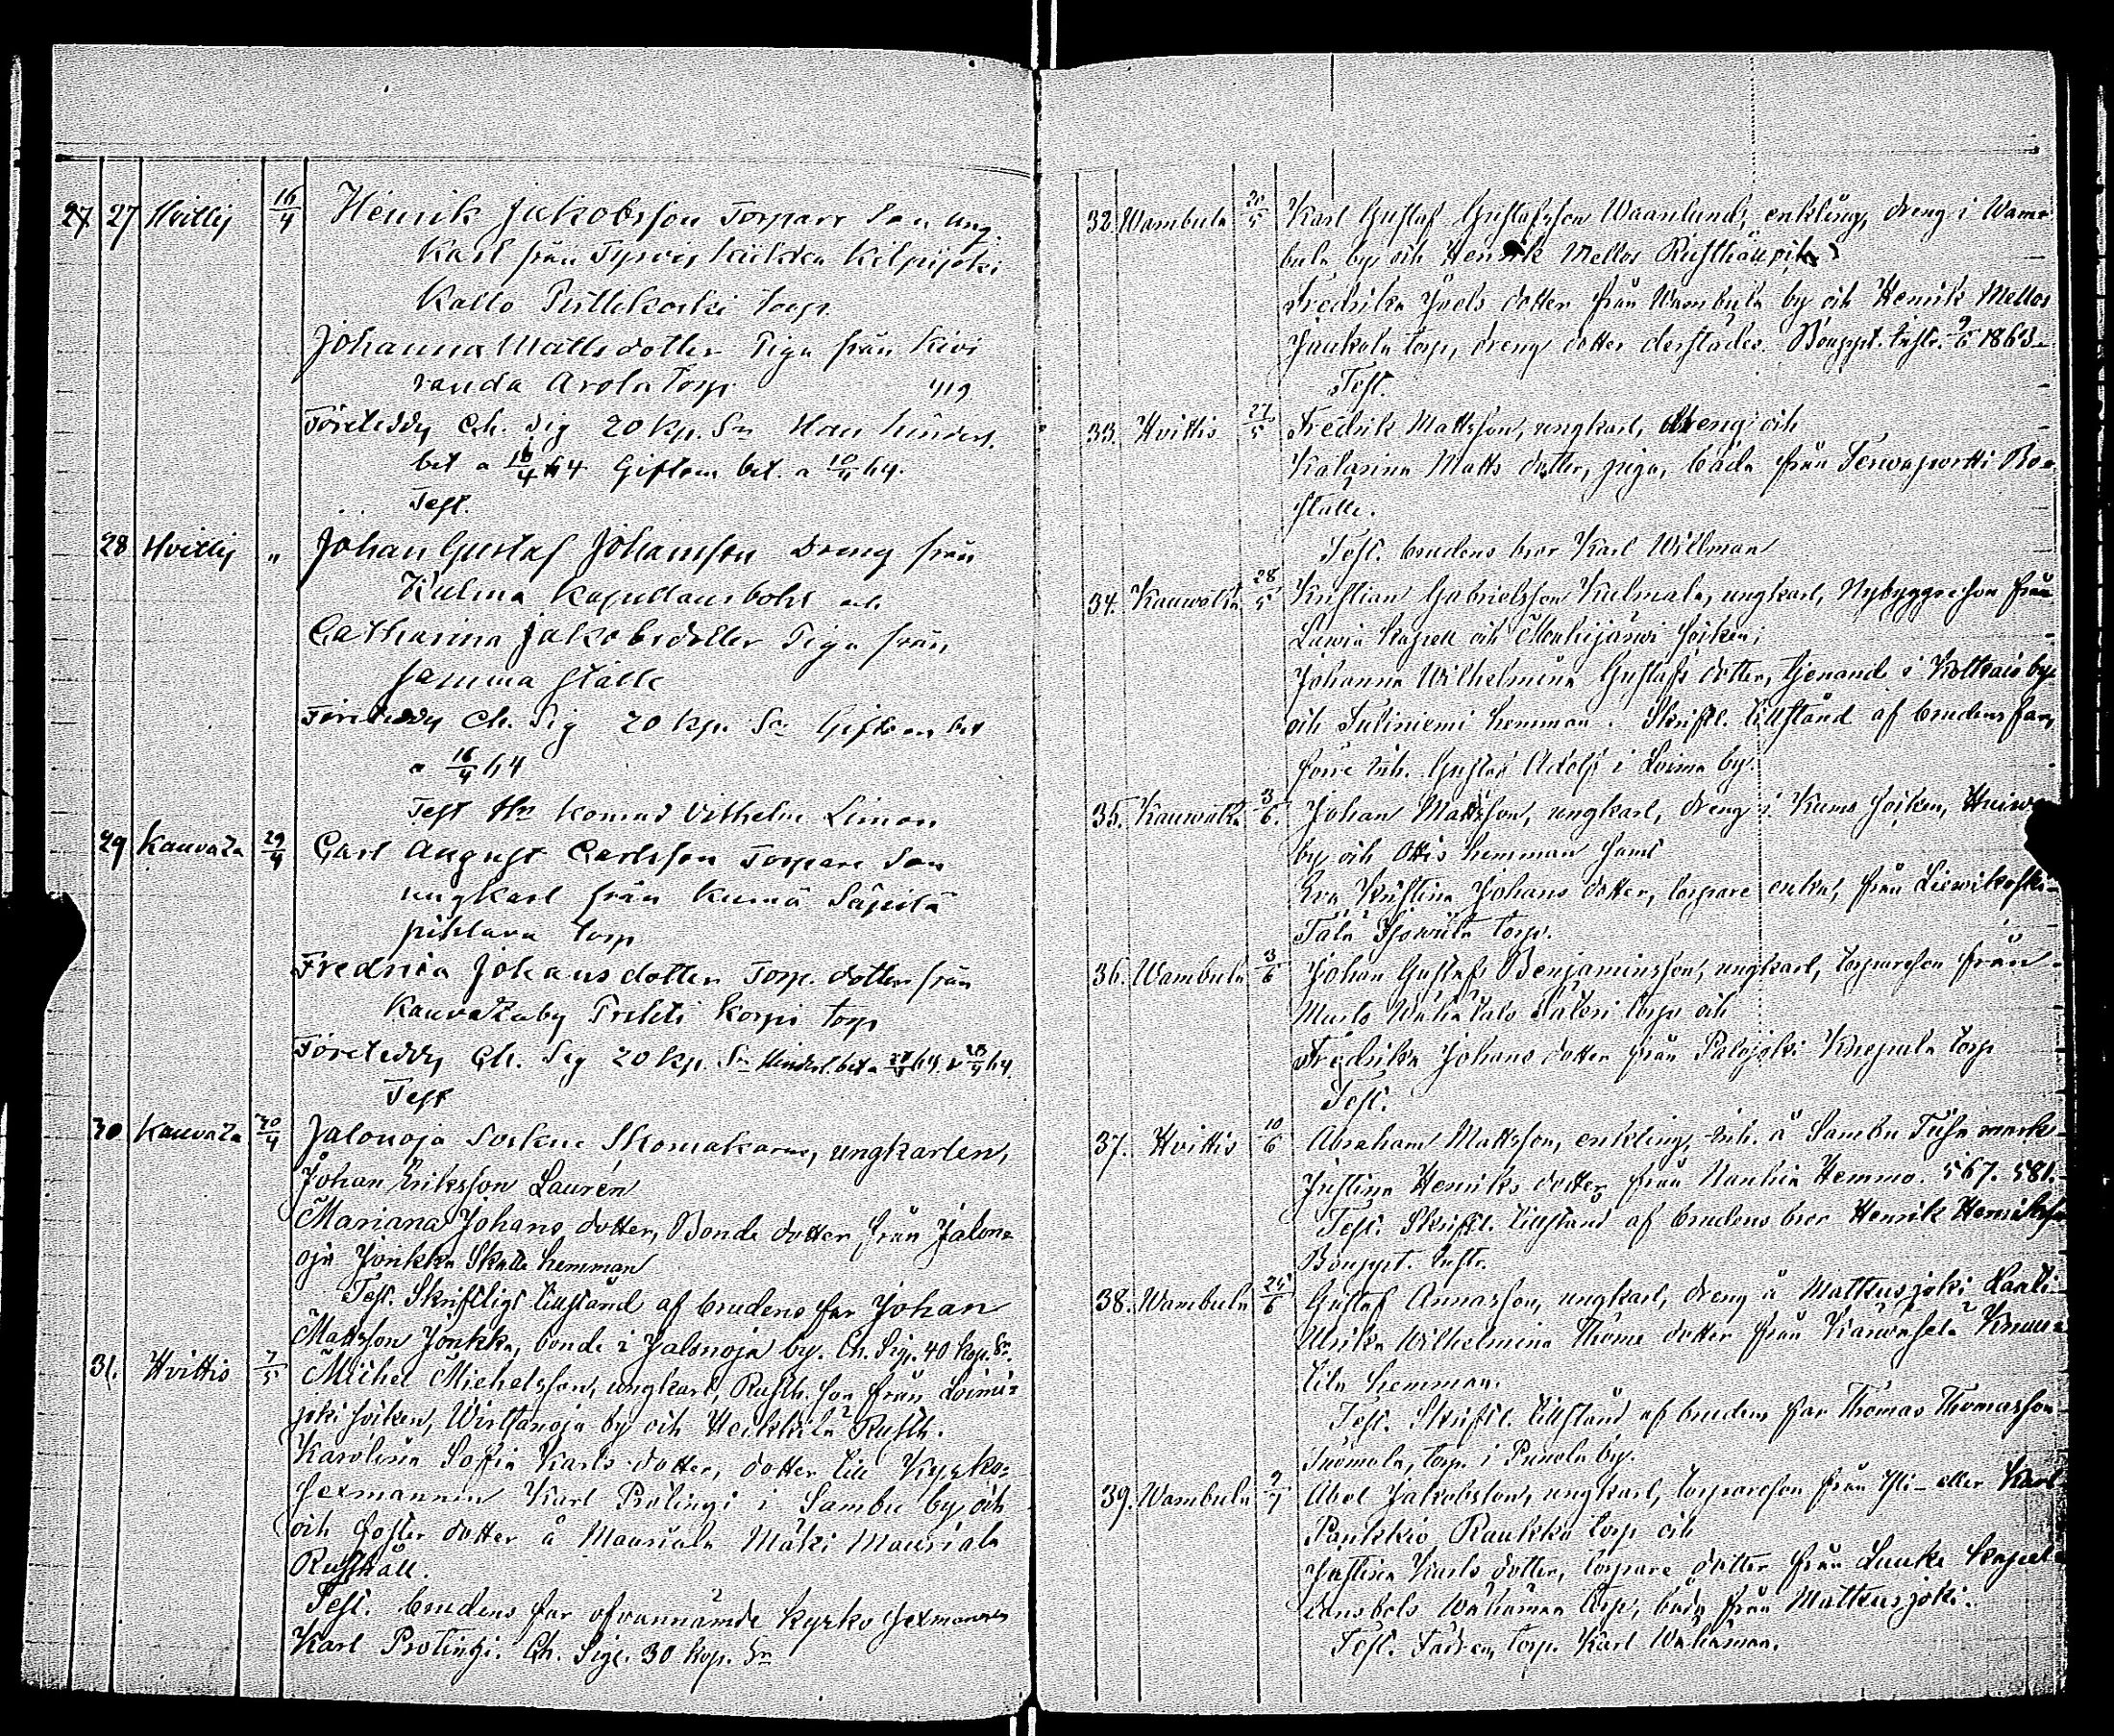 27 27 Hvittis 16/4 Henrik Jakobsson Torpare Son ung
Karl från Tyrvis Kiikka Kilpijoki
Kallo Pistlekoski torp.
Johanna Mattsdotter Piga från Kivi
randa Arola Torp 419
Företedde Ch. Sig 20 kp. Sr Hau hinderl.
bet a 16/4 64 Giftom bet. a 64.
Test.
28 Hvittis " Johan Gustaf Johansson Dreng från
Kulma Kapellansbohl och
Catharina Jakobsdotter Piga från
samma ställe
Företedde Ch. Sig 20 kp. Sr Giftom bet
a 16/4 64
Test Hr Konrad Vilhelm Limon
29 Kauvatz 29/4 Carl August Carlsson Torpare Son
ungkarl från Kumå Säpilä
pihlava torp
Fredrica Johansdotter Torp. dotter från
Kauvatzaby Prekti Korpi torp
Företedde Ch. Sig 20 kp. Sr Hinderl. bet a 64.
Test
30 Kauvatz 30/4 Jalonoja Sockne Skomakaren, ungkarlen,
Johan Eriksson Laurén
Mariana Johans dotter, Bonde dotter från Jalon-
oja Jonkka Skatte hemman
Test. Skriftligt tillstånd af brudens far Johan
Mattsson Jonkka, bonde i Jalonoja by. Ch. Sig. 40 kop. Sr.
31. Hvittis 7/5 Michel Michelsson, ungkarl, Rusth. son från Loimi-
joki socken, Wirttanoja by och Heikkilä Rusth.
Karolina Sofia Karls dotter, dotter till Kyrko-
sexmannen Karl Prolingi i Sambu by och
och foster dotter å Mauriala Mäki Mauriala
Rusthåll.
Test. brudens far ofvannämde kyrko sexmannen
Karl Prolingi. Ch. Sige. 30 kop. Sr
32. Wambula 20/5 Karl Gustaf Gustafsson Waanlund, enkling, dreng i Wam-
bula by och Henrik Mellos Rusthåll
Fredrika Joels dotter från Wambula by och Henrik Mellos
Jaukola torp, dreng dotter derstädes. Bouppt. instr. 1863.
Test.
33. Hvittis 27/5 Fredrik Mattsson, ungkarl, dreng och
Katarina Matts dotter, piga, båda från Terwaportti Bo-
ställe.
Test. brudens bror Karl Willman
34. Kauwatsa 28/5 Kristian Gabrielsson Kulmala, ungkarl, Nybyggareson från
Lawia Kapell och Mouhijärwi socken,
Johanna Wilhelmina Gustafs dotter, tjenande i Kolkais by
och Tuliniemi hemman. Skriftl. tillstånd af brudens far,
förre Inh. Gustav Adolf i Loima by.
35. Kauwatsa 3/6. Johan Mattsson, ungkarl, dreng i Kumo socken,
by och Ottis hemman samt
Eva Kristina Johans dotter, torpare enka, från Liewikoski-
Tala torp.
36. Wambula 3/6 Johan Gustafs Benjaminsson, ungkarl, torpareson från
Murto Wähätalo Säteri torp och
Fredrika Johans dotter från Palojoki Knepula torp
Test.
37. Hvittis 10/6 Abraham Mattsson, enkling, Inh. å Sambu Tusa mark
Justina Henriks dotter från Nanhia Hemmo. 567. 581.
Test. Skriftl. tillstånd af brudens bror Henrik Henriksson
Bouppt. Instr.
38. Wambula 24/6 Gustaf Annasson, ungkarl, dreng å Matkusjoki Lanti-
Ulrika Wilhelmina Thome dotter från Karwasela
tila hemman.
Test. Skriftl. tillstånd af brudens far Thomas Thomasson
Tuomola, torp. i Punola by.
39. Wambula 9/7 Abel Jakobsson, ungkarl, torpareson från Yli- eller Karl
Pankkio Raukka torp och
Justina Karls dotter, torpare dotter från Lauke Kapel-
lansbols Wähämaa torp, båda från Matkusjoki.
Test. Fadren, torp. Karl Wähämaa.